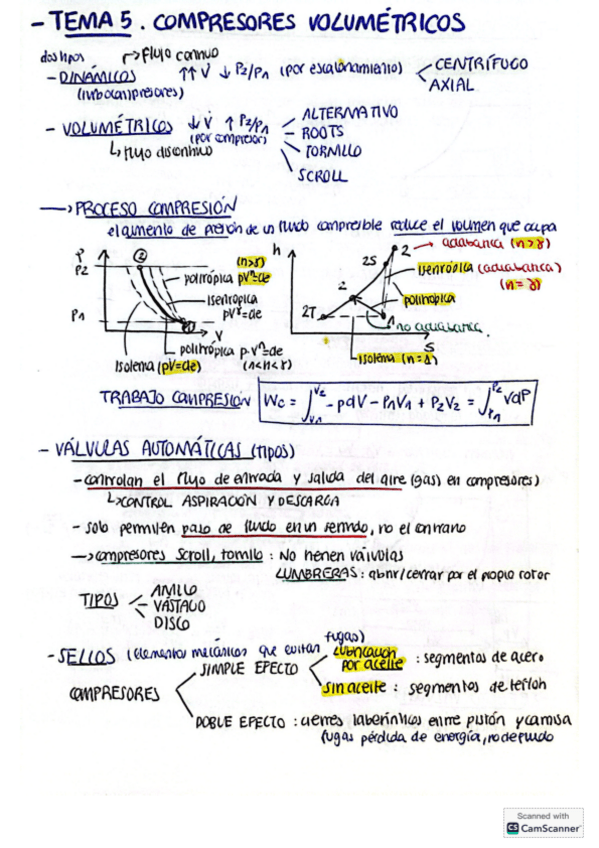 - TEMA 5. COMPRESORES VOLUMÉTRICOS
dos tipos → Flujo continuo
- DINÁMICOS ↑↑ V̇ ↓ P2/P1 (por escalonamiento) CENTRÍFUGO
(turbocompresores) AXIAL
- VOLUMÉTRICOS ↓ V̇ ↑ P2/P1 ALTERNATIVO
(por compresor) ROOTS
↳ flujo discontinuo TORNILLO
SCROLL
→ PROCESO COMPRESIÓN
el aumento de presión de un fluido compresible reduce el volumen que ocupa
P
P2
P1
V
2
1
(n>γ)
politrópica pVⁿ=cte
isentrópica
pVᵞ=cte
politrópica p·Vⁿ=cte
(1<n<γ)
Isoterma (pV=cte)
h
2 → adiabática (n>γ)
2S
isentrópica (adiabática)
(n=γ)
2
politrópica
2T
1
no adiabática
S
Isoterma (n=1)
TRABAJO COMPRESIÓN Wc = ∫V1 V2 -pdV - P1V1 + P2V2 = ∫P1 P2 VdP
- VÁLVULAS AUTOMÁTICAS (tipos)
- controlan el flujo de entrada y salida del aire (gas) en compresores)
↳ CONTROL ASPIRACIÓN Y DESCARGA
- solo permiten paso de fluido en un sentido, no el contrario
→ compresores Scroll, tornillo: No tienen válvulas
LUMBRERAS: abrir/cerrar por el propio rotor
TIPOS ANILLO
VÁSTAGO
DISCO
- SELLOS (elementos mecánicos que evitan fugas)
COMPRESORES
SIMPLE EFECTO
Lubricación por aceite: segmentos de acero
Sin aceite: segmentos de teflón
DOBLE EFECTO: cierres laberínticos entre pistón y camisa
fugas pérdida de energía, no de fluido
Scanned with
CS CamScanner